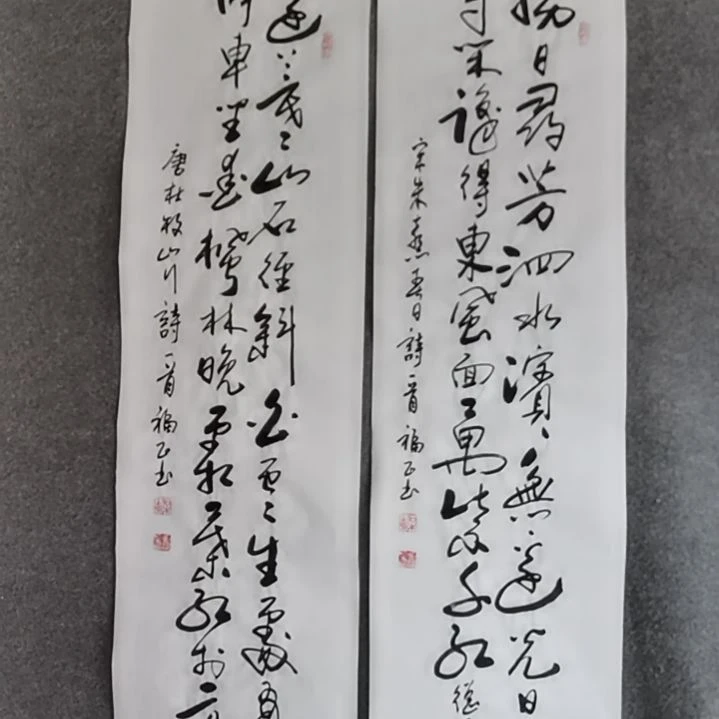 勝日尋芳泗水濱無邊光
等閑識得東風面萬紫千紅總
宋朱熹春日詩一首 福正书
遠上寒山石徑斜白雲生處有
停車坐愛楓林晚霜葉紅於二
唐杜牧山行詩一首 福正书